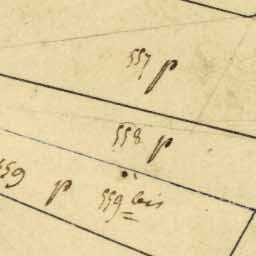 557 p
558 p
559 p
559 bis